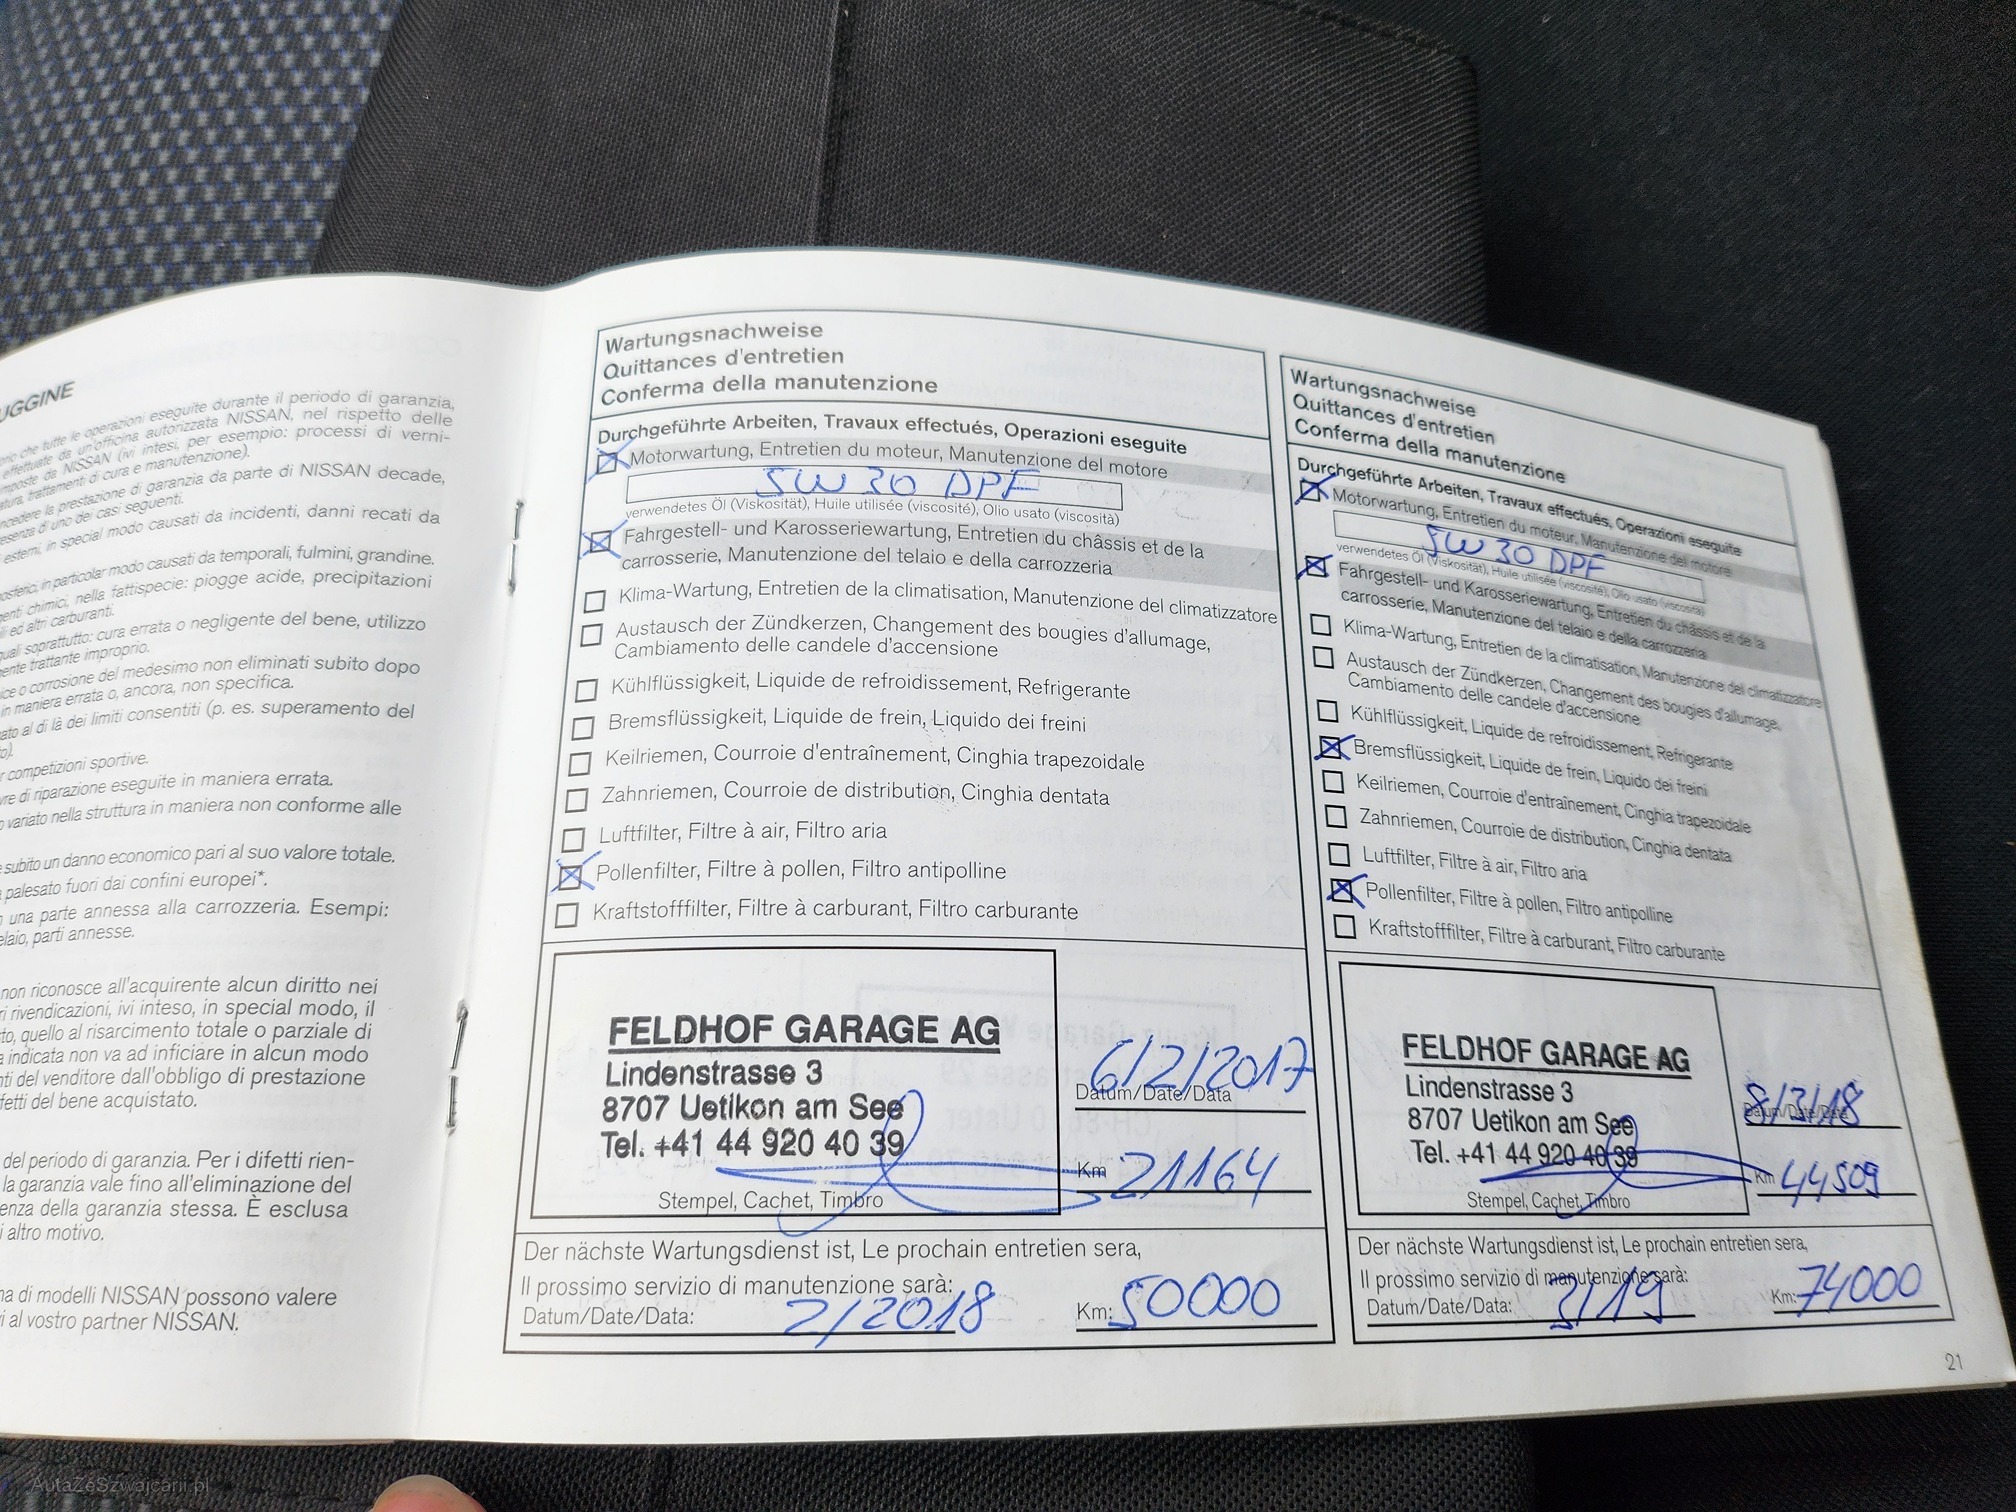 UGGINE
che tutte le operazioni eseguite durante il periodo di garanzia,
effettuate da un'officina autorizzata NISSAN, nel rispetto delle
imposte da NISSAN (ivi intesi, per esempio: processi di verni-
trattamenti di cura e manutenzione).
prestazione di garanzia da parte di NISSAN decade,
di uno dei casi seguenti.
esterni, in special modo causati da incidenti, danni recati da
in particolar modo causati da temporali, fulmini, grandine.
chimici, nella fattispecie: piogge acide, precipitazioni
ed altri carburanti.
soprattutto: cura errata o negligente del bene, utilizzo
trattante improprio.
o corrosione del medesimo non eliminati subito dopo
in maniera errata o, ancora, non specifica.
al di là dei limiti consentiti (p. es. superamento del
competizioni sportive.
di riparazione eseguite in maniera errata.
variato nella struttura in maniera non conforme alle
subito un danno economico pari al suo valore totale.
palesato fuori dai confini europei*.
una parte annessa alla carrozzeria. Esempi:
parti annesse.
non riconosce all'acquirente alcun diritto nei
rivendicazioni, ivi inteso, in special modo, il
quello al risarcimento totale o parziale di
indicata non va ad inficiare in alcun modo
del venditore dall'obbligo di prestazione
del bene acquistato.
del periodo di garanzia. Per i difetti rien-
la garanzia vale fino all'eliminazione del
della garanzia stessa. È esclusa
altro motivo.
di modelli NISSAN possono valere
al vostro partner NISSAN.
Wartungsnachweise
Quittances d'entretien
Conferma della manutenzione
Durchgeführte Arbeiten, Travaux effectués, Operazioni eseguite
Motorwartung, Entretien du moteur, Manutenzione del motore
5W30 DPF
verwendetes Öl (Viskosität), Huile utilisée (viscosité), Olio usato (viscosità)
Fahrgestell- und Karosseriewartung, Entretien du châssis et de la
carrosserie, Manutenzione del telaio e della carrozzeria
Klima-Wartung, Entretien de la climatisation, Manutenzione del climatizzatore
Austausch der Zündkerzen, Changement des bougies d'allumage,
Cambiamento delle candele d'accensione
Kühlflüssigkeit, Liquide de refroidissement, Refrigerante
Bremsflüssigkeit, Liquide de frein, Liquido dei freini
Keilriemen, Courroie d'entraînement, Cinghia trapezoidale
Zahnriemen, Courroie de distribution, Cinghia dentata
Luftfilter, Filtre à air, Filtro aria
Pollenfilter, Filtre à pollen, Filtro antipolline
Kraftstofffilter, Filtre à carburant, Filtro carburante
FELDHOF GARAGE AG
Lindenstrasse 3
8707 Uetikon am See
Tel. +41 44 920 40 39
Stempel, Cachet, Timbro
6/2/2017
Datum/Date/Data
Km 21164
Der nächste Wartungsdienst ist, Le prochain entretien sera,
Il prossimo servizio di manutenzione sarà:
Datum/Date/Data: 2/2018 Km: 50000
Wartungsnachweise
Quittances d'entretien
Conferma della manutenzione
Durchgeführte Arbeiten, Travaux effectués, Operazioni eseguite
Motorwartung, Entretien du moteur, Manutenzione del motore
5W30 DPF
verwendetes Öl (Viskosität), Huile utilisée (viscosité), Olio usato (viscosità)
Fahrgestell- und Karosseriewartung, Entretien du châssis et de la
carrosserie, Manutenzione del telaio e della carrozzeria
Klima-Wartung, Entretien de la climatisation, Manutenzione del climatizzatore
Austausch der Zündkerzen, Changement des bougies d'allumage,
Cambiamento delle candele d'accensione
Kühlflüssigkeit, Liquide de refroidissement, Refrigerante
Bremsflüssigkeit, Liquide de frein, Liquido dei freini
Keilriemen, Courroie d'entraînement, Cinghia trapezoidale
Zahnriemen, Courroie de distribution, Cinghia dentata
Luftfilter, Filtre à air, Filtro aria
Pollenfilter, Filtre à pollen, Filtro antipolline
Kraftstofffilter, Filtre à carburant, Filtro carburante
FELDHOF GARAGE AG
Lindenstrasse 3
8707 Uetikon am See
Tel. +41 44 920 40 39
Stempel, Cachet, Timbro
8/3/18
Datum/Date/Data
Km 44509
Der nächste Wartungsdienst ist, Le prochain entretien sera,
Il prossimo servizio di manutenzione sarà:
Datum/Date/Data: 3/19 Km: 74000
21
AutaZeSzwajcarii.pl